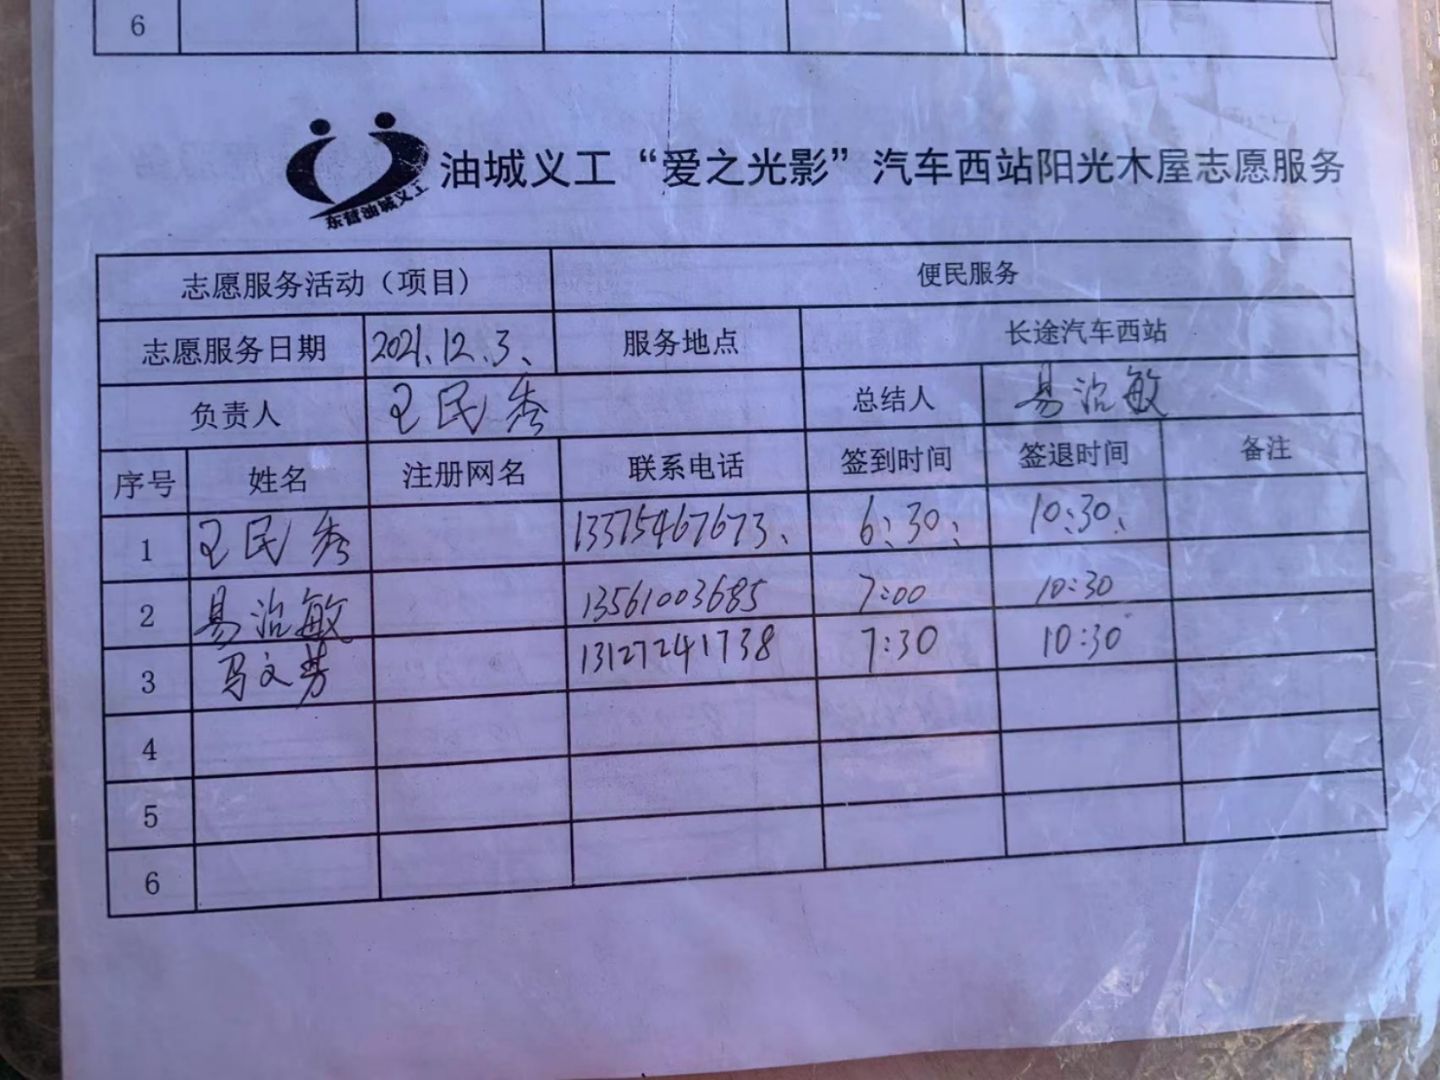 6
东营油城义工
油城义工“爱之光影”汽车西站阳光木屋志愿服务
志愿服务活动（项目） 便民服务
志愿服务日期 2021.12.3、 服务地点 长途汽车西站
负责人 王民秀 总结人 易治敏
序号 姓名 注册网名 联系电话 签到时间 签退时间 备注
1 王民秀 13375467673、 6:30: 10:30、
2 易治敏 13561003685 7:00 10:30
3 马文芳 13127241738 7:30 10:30
4
5
6